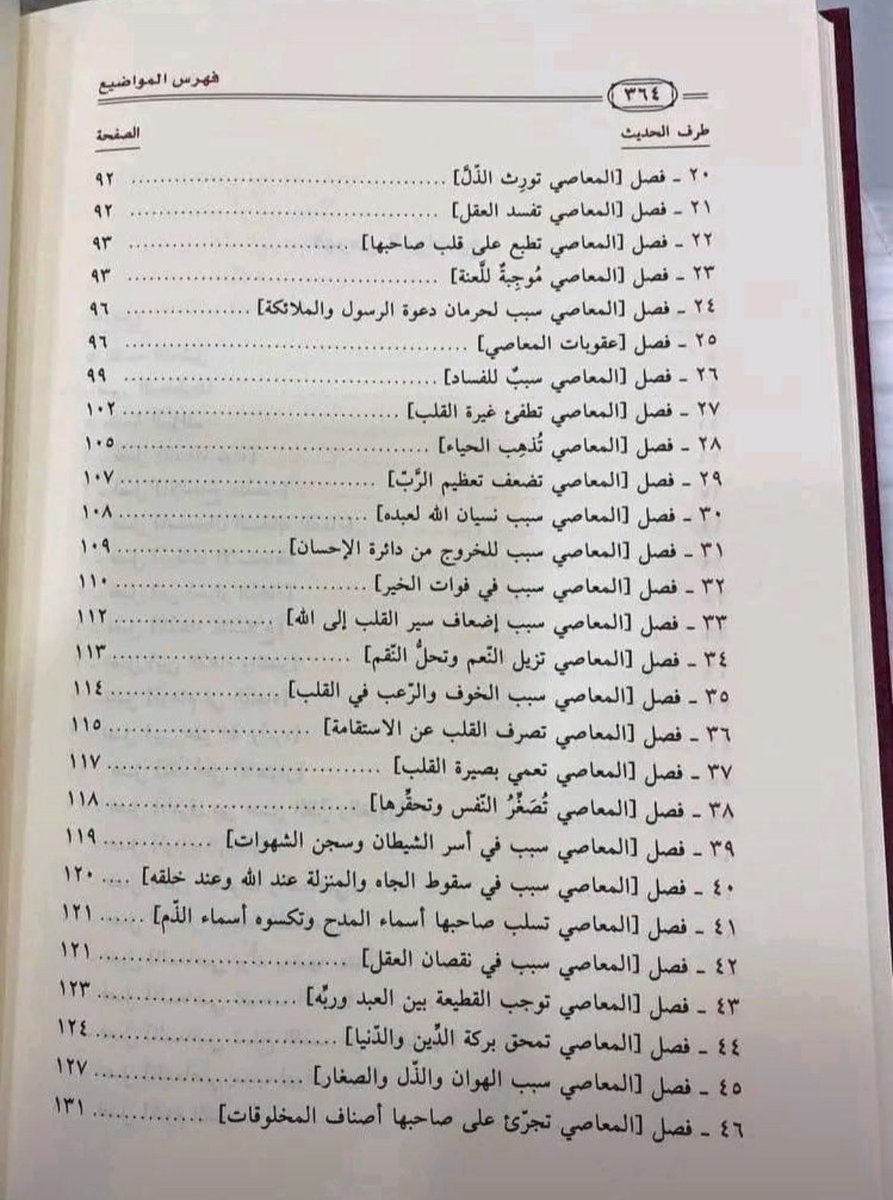 فهرس المواضيع
٣٦٤
طرف الحديث الصفحة
٢٠ ـ فصل [المعاصي تورِث الذّلَّ] ٩٢
٢١ ـ فصل [المعاصي تفسد العقل] ٩٢
٢٢ ـ فصل [المعاصي تطبع على قلب صاحبها] ٩٣
٢٣ ـ فصل [المعاصي مُوجِبةٌ للَّعنة] ٩٣
٢٤ ـ فصل [المعاصي سبب لحرمان دعوة الرسول والملائكة] ٩٦
٢٥ ـ فصل [عقوبات المعاصي] ٩٦
٢٦ ـ فصل [المعاصي سببٌ للفساد] ٩٩
٢٧ ـ فصل [المعاصي تطفئ غيرة القلب] ١٠٢
٢٨ ـ فصل [المعاصي تُذهِب الحياء] ١٠٥
٢٩ ـ فصل [المعاصي تضعف تعظيم الرَّبّ] ١٠٧
٣٠ ـ فصل [المعاصي سبب نسيان الله لعبده] ١٠٨
٣١ ـ فصل [المعاصي سبب للخروج من دائرة الإحسان] ١٠٩
٣٢ ـ فصل [المعاصي سبب في فوات الخير] ١١٠
٣٣ ـ فصل [المعاصي سبب إضعاف سير القلب إلى الله] ١١٢
٣٤ ـ فصل [المعاصي تزيل النّعم وتحلُّ النّقم] ١١٣
٣٥ ـ فصل [المعاصي سبب الخوف والرّعب في القلب] ١١٤
٣٦ ـ فصل [المعاصي تصرف القلب عن الاستقامة] ١١٥
٣٧ ـ فصل [المعاصي تعمي بصيرة القلب] ١١٧
٣٨ ـ فصل [المعاصي تُصَغِّرُ النّفس وتحقِّرها] ١١٨
٣٩ ـ فصل [المعاصي سبب في أسر الشيطان وسجن الشهوات] ١١٩
٤٠ ـ فصل [المعاصي سبب في سقوط الجاه والمنزلة عند الله وعند خلقه] ١٢٠
٤١ ـ فصل [المعاصي تسلب صاحبها أسماء المدح وتكسوه أسماء الذّم] ١٢١
٤٢ ـ فصل [المعاصي سبب في نقصان العقل] ١٢١
٤٣ ـ فصل [المعاصي توجب القطيعة بين العبد وربِّه] ١٢٣
٤٤ ـ فصل [المعاصي تمحق بركة الدِّين والدّنيا] ١٢٤
٤٥ ـ فصل [المعاصي سبب الهوان والذّل والصغار] ١٢٧
٤٦ ـ فصل [المعاصي تجرّئ على صاحبها أصناف المخلوقات] ١٣١